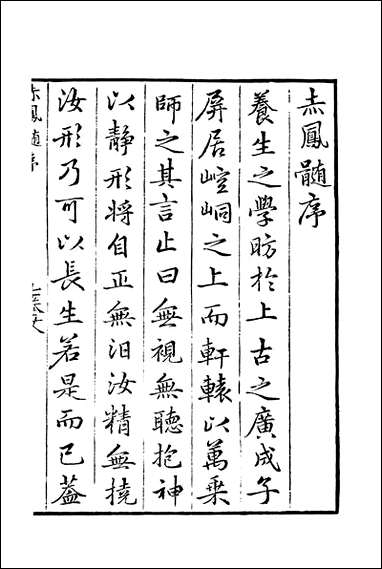 赤鳳髓序
養生之學昉於上古之廣成子
屏居崆峒之上而軒轅以萬乗
師之其言止曰無視無聽抱神
以静形將自正無汨汝精無撓
汝形乃可以長生若是而已蓋
赤鳳髓序